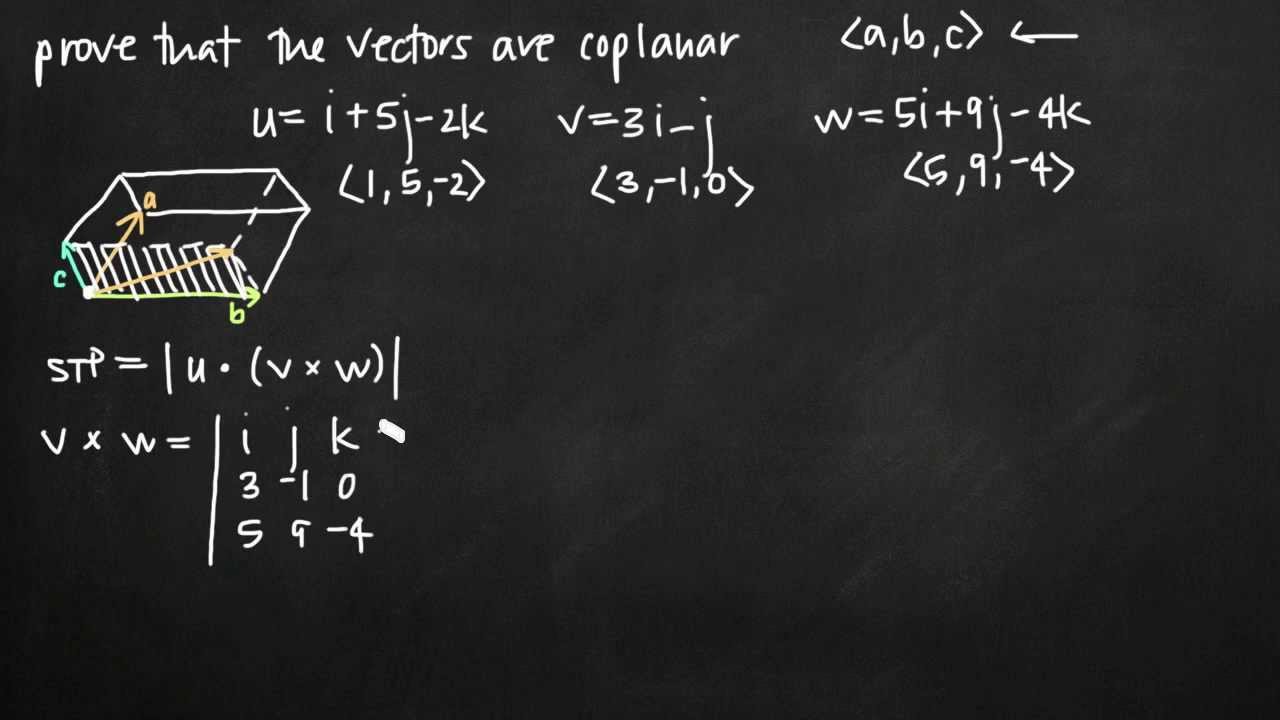 prove that the vectors are coplanar <a,b,c> ←
u= i+5j-2k v=3i-j w=5i+9j-4k
<1,5,-2> <3,-1,0> <5,9,-4>
a
c
b
STP = |u · (v × w)|
v × w = | i j k
3 -1 0
5 9 -4